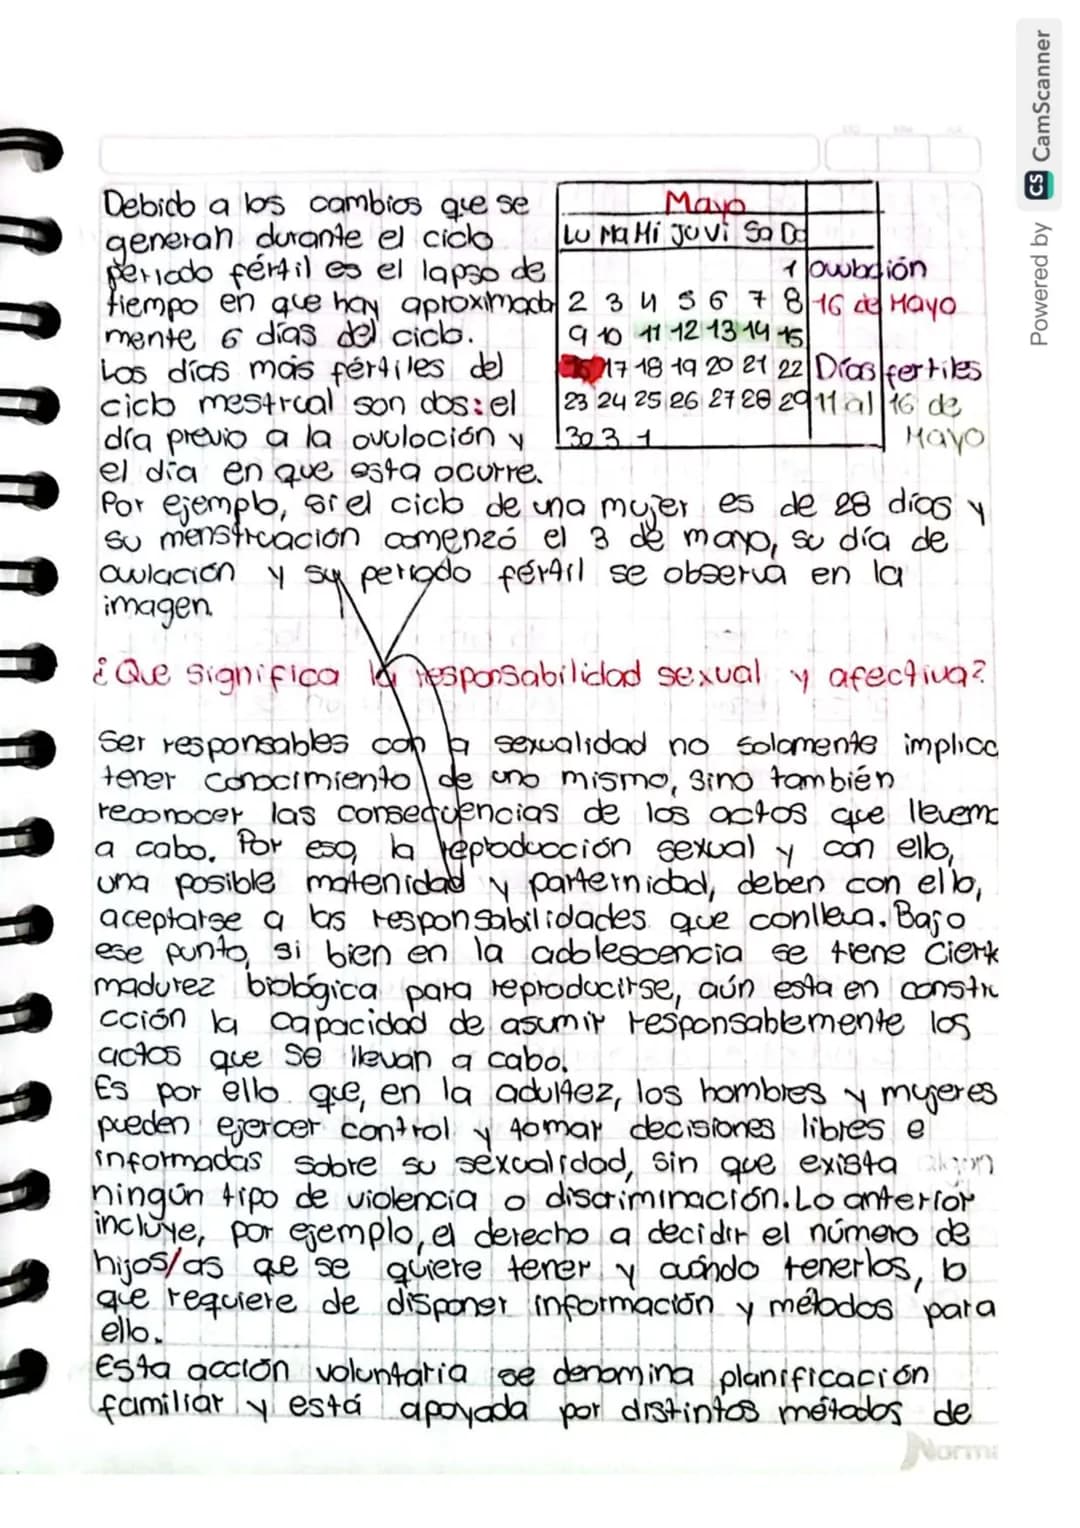 Debido a los cambios que se
generan durante el ciclo
periodo fértil es el lapso de
tiempo en que hay aproximada
mente 6 días del ciclo.
Los días más fértiles del
ciclo mestrual son dos: el
día previo a la ovuloción y
el día en que esta ocurre.
Mayo
LU Ma Mi JU Vi Sa Do
1
2 3 4 5 6 7 8
9 10 11 12 13 14 15
16 17 18 19 20 21 22
23 24 25 26 27 28 29
30 3 1
ovulación
16 de Mayo
Días fertiles
11 al 16 de
Mayo
Por ejemplo, si el ciclo de una mujer es de 28 días y
su menstruación comenzó el 3 de mayo, su día de
ovulación y su periodo fértil se observa en la
imagen.
¿Que significa la responsabilidad sexual y afectiva?
Ser responsables con la sexualidad no solamente implica
tener conocimiento de uno mismo, sino también
reconocer las consecuencias de los actos que llevemo
a cabo. Por eso, la reproducción sexual y con ello,
una posible matenidad y parternidad, deben con ello,
aceptarse a las responsabilidades que conlleva. Bajo
ese punto, si bien en la adolescencia se tiene cierk
madurez biológica para reproducirse, aún esta en constru
cción la capacidad de asumir responsablemente los
actos que se llevan a cabo.
Es por ello que, en la adultez, los hombres y mujeres
pueden ejercer control y tomar decisiones libres e
informadas sobre su sexualidad, sin que exista
ningún tipo de violencia o discriminación. Lo anterior
incluye, por ejemplo, el derecho a decidir el número de
hijos/as que se quiere tener y cuándo tenerlos, lo
que requiere de disponer información y métodos para
ello.
Esta acción voluntaria se denomina planificación
familiar y está apoyada por distintos métodos de
Norma
Powered by CS CamScanner